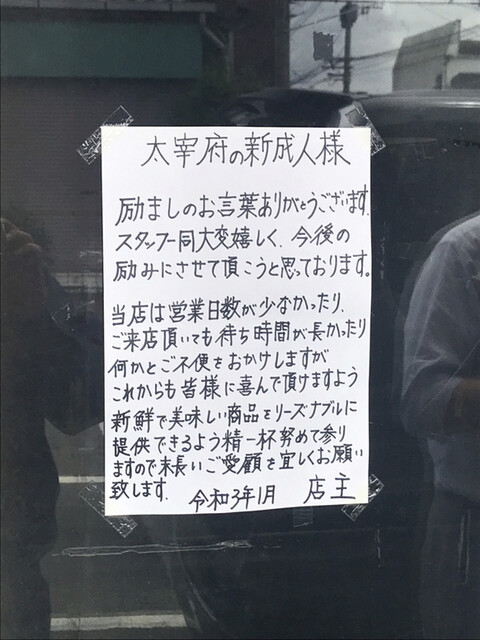 太宰府の新成人様
励ましのお言葉ありがとうございます。
スタッフ一同大変嬉しく、今後の
励みにさせて頂こうと思っております。
当店は営業日数が少なかったり、
ご来店頂いても待ち時間が長かったり
何かとご不便をおかけしますが
これからも皆様に喜んで頂けますよう
新鮮で美味しい商品をリーズナブルに
提供できるよう精一杯努めて参り
ますので末長いご愛顧を宜しくお願い
致します。
令和3年1月 店主